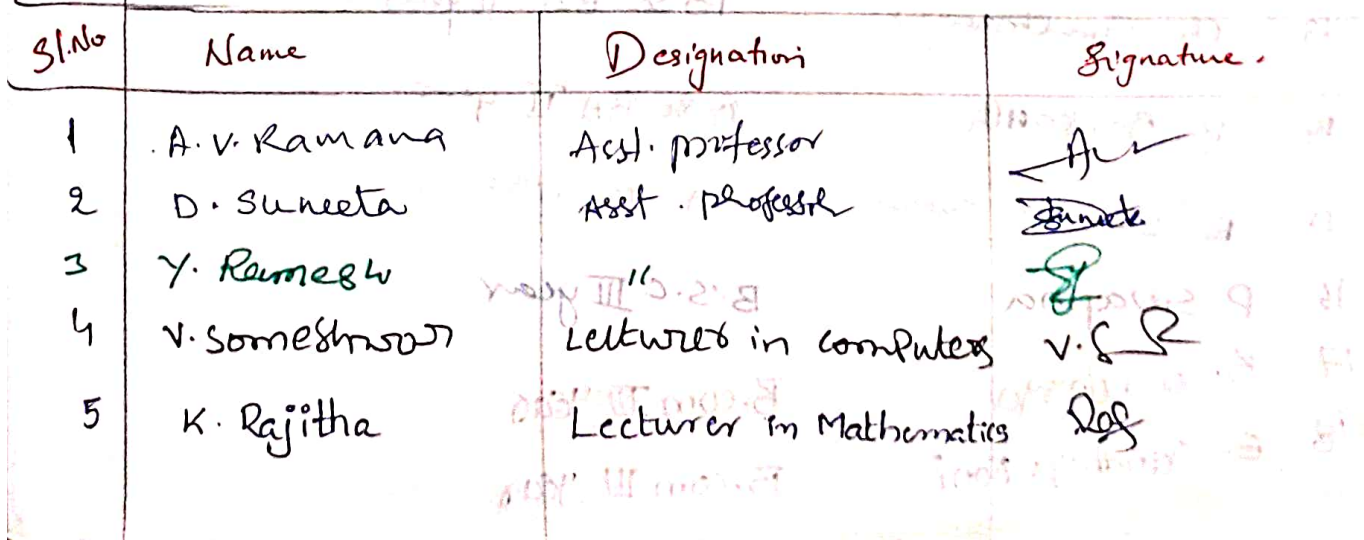 Sl.No Name Designation Signature.
1 A. V. Ramana Asst. professor
2 D. Suneeta Asst. professor Suneeta
3 Y. Ramesh "
4 V. Someshwar Lecturer in computers V.S
5 K. Rajitha Lecturer in Mathematics Raj